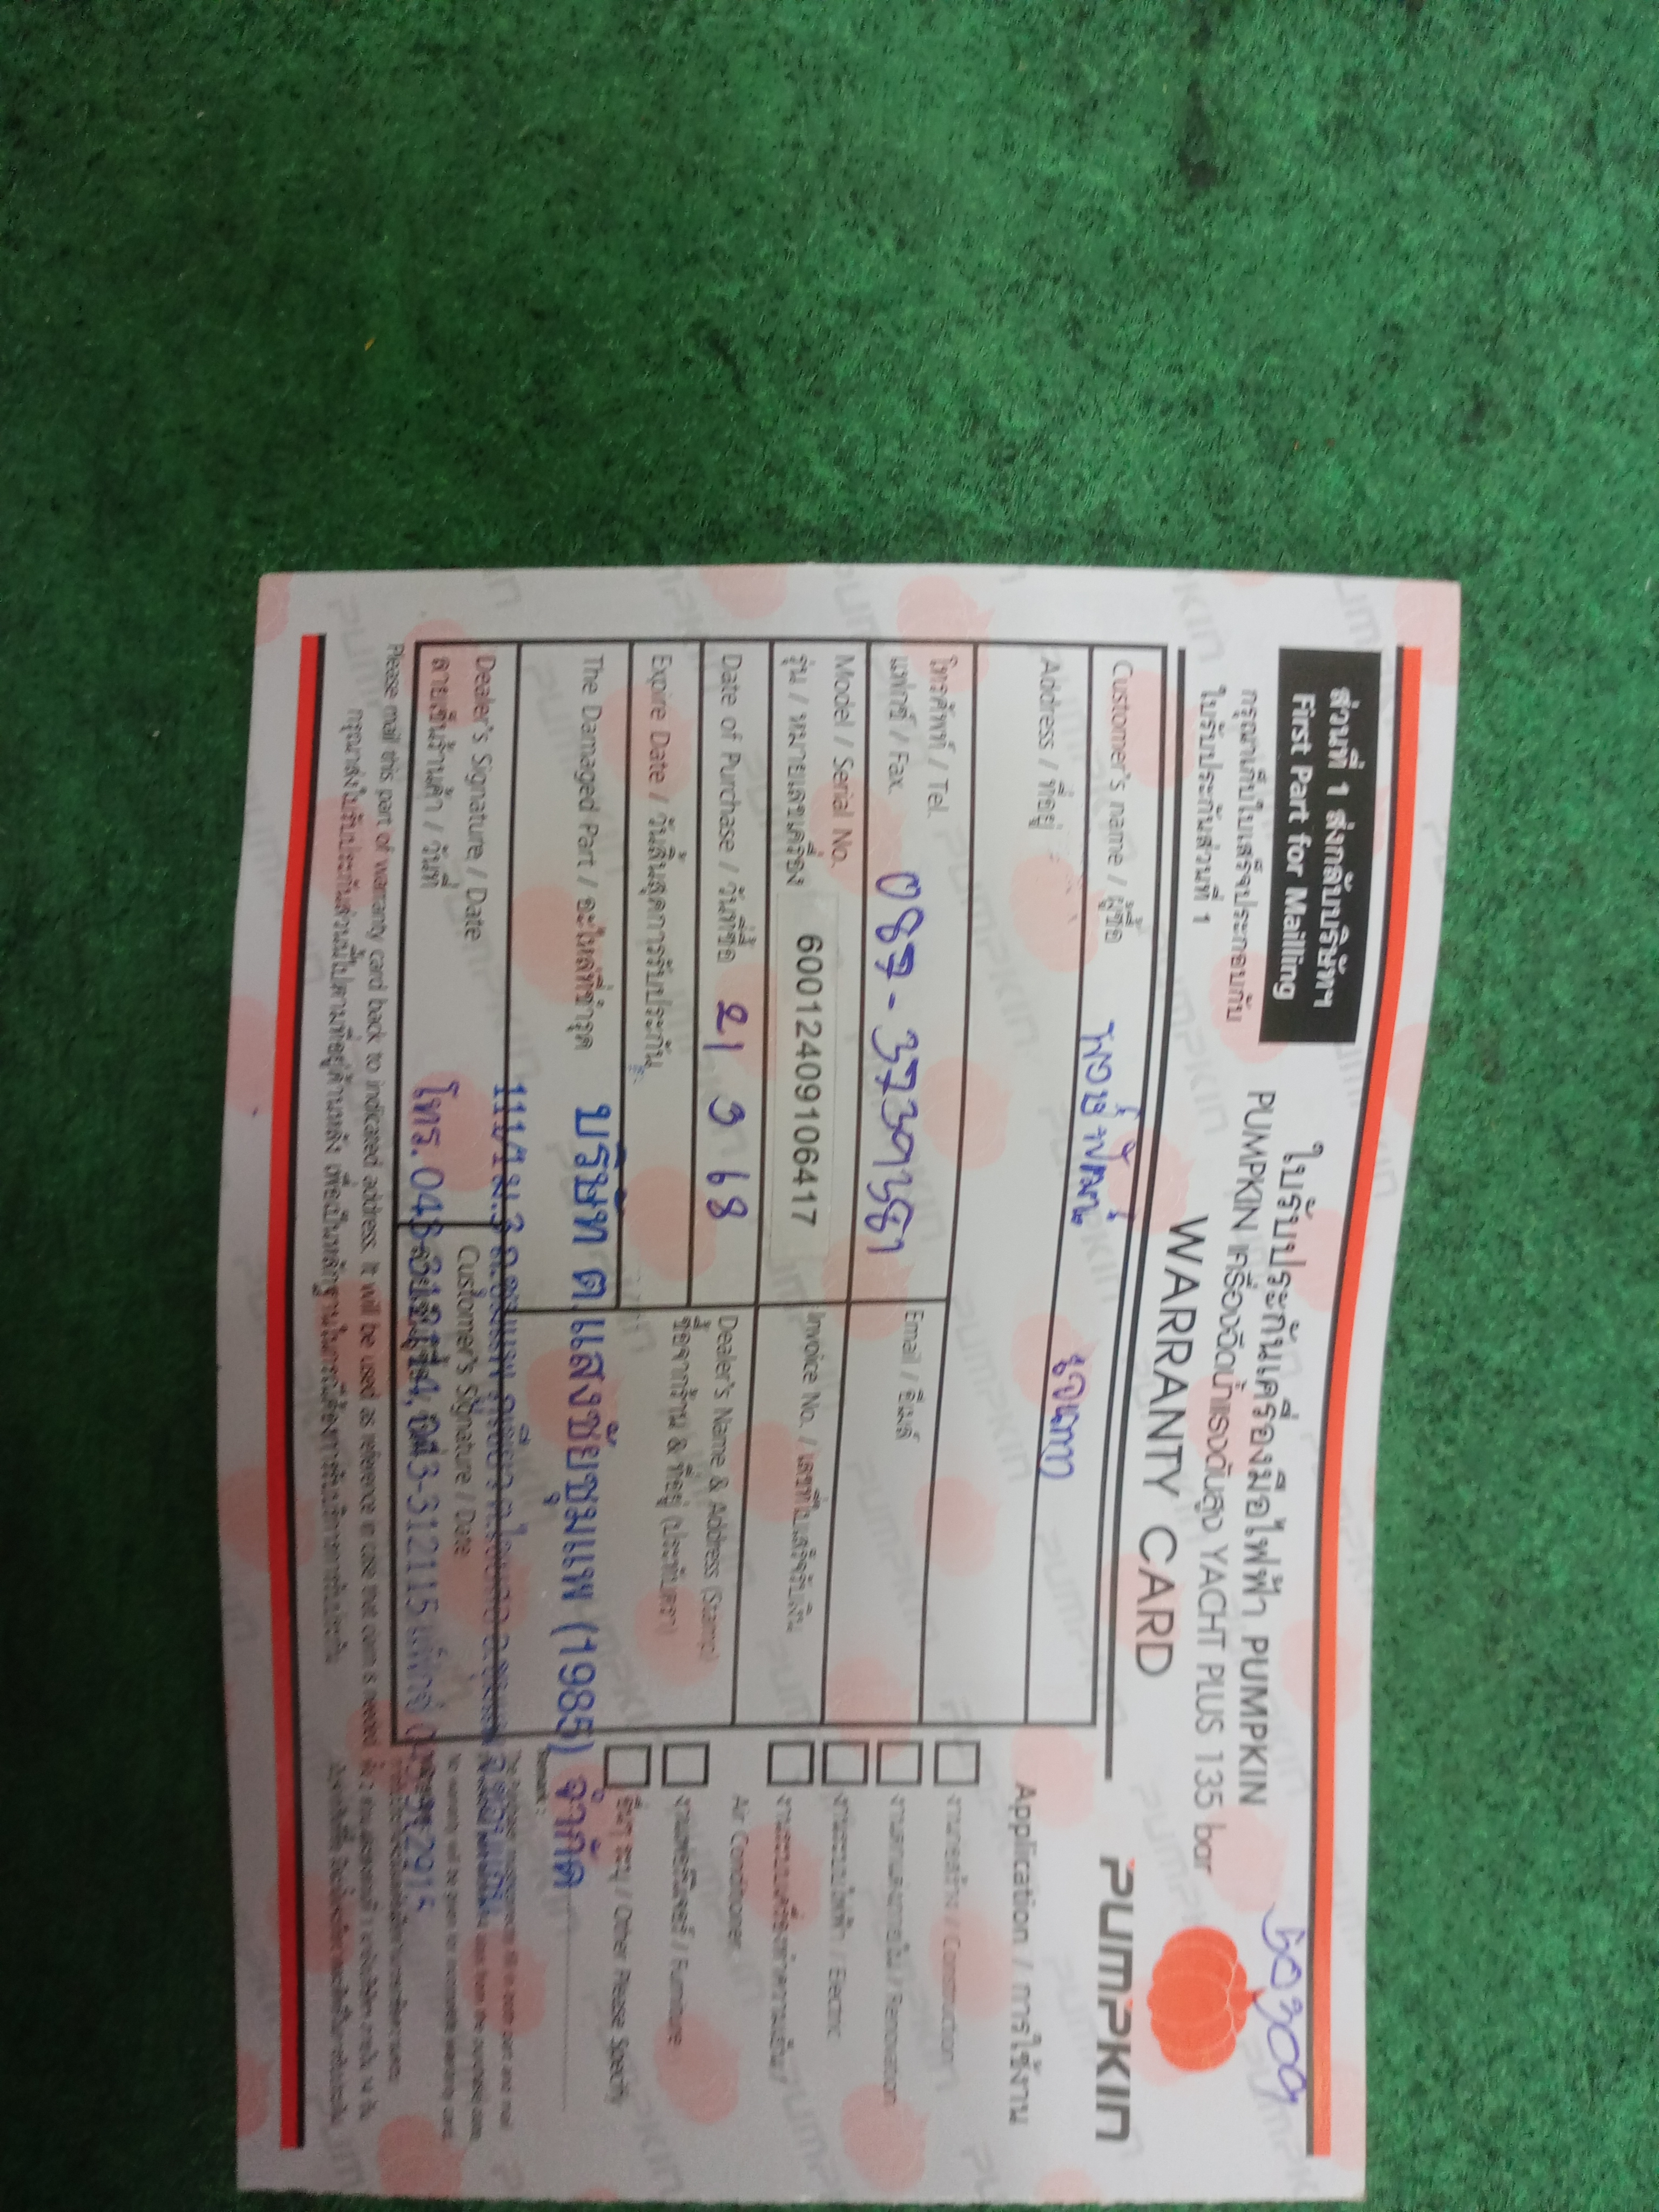 ส่วนที่ 1 ส่งกลับบริษัทฯ
First Part for Mailling
กรุณาเก็บใบเสร็จประกอบกับ
ใบรับประกันส่วนที่ 1
ใบรับประกันเครื่องมือไฟฟ้า PUMPKIN
PUMPKIN เครื่องฉีดน้ำแรงดันสูง YACHT PLUS 135 bar
WARRANTY CARD
PUMPKIN
Customer's name / ผู้ซื้อ
Address / ที่อยู่
โทรศัพท์ / Tel.
แฟกซ์ / Fax.
Email / อีเมล์
Model / Serial No.
รุ่น / หมายเลขเครื่อง 600124091106417
Invoice No. / เลขที่ใบเสร็จรับเงิน
Date of Purchase / วันที่ซื้อ 21
Dealer's Name & Address (Stamp)
ซื้อจากร้าน & ที่อยู่ (ประทับตรา)
Expire Date / วันสิ้นสุดการรับประกัน
The Damaged Part / อะไหล่ที่ชำรุด
บริษัท ต.แสงชัยชุมแพ (1985) จำกัด
111/1 ม.3
Dealer's Signature / Date
ลายเซ็นร้านค้า / วันที่
Customer's Signature / Date
โทร. 043-312114, 043-312115
Application / การใช้งาน
งานก่อสร้าง / Construction
งานตกแต่งภายใน / Renovation
งานระบบไฟฟ้า / Electric
งานระบบเครื่องทำความเย็น /
Air Conditioner
งานเฟอร์นิเจอร์ / Furniture
อื่นๆ ระบุ / Other Please Specify
Remark :
Please mail this part of warranty card back to indicated address. It will be used as reference in case that claim is needed
กรุณาส่งใบรับประกันส่วนนี้ไปตามที่อยู่ด้านหลัง เพื่อเป็นหลักฐานในกรณีต้องการรับบริการการรับประกัน